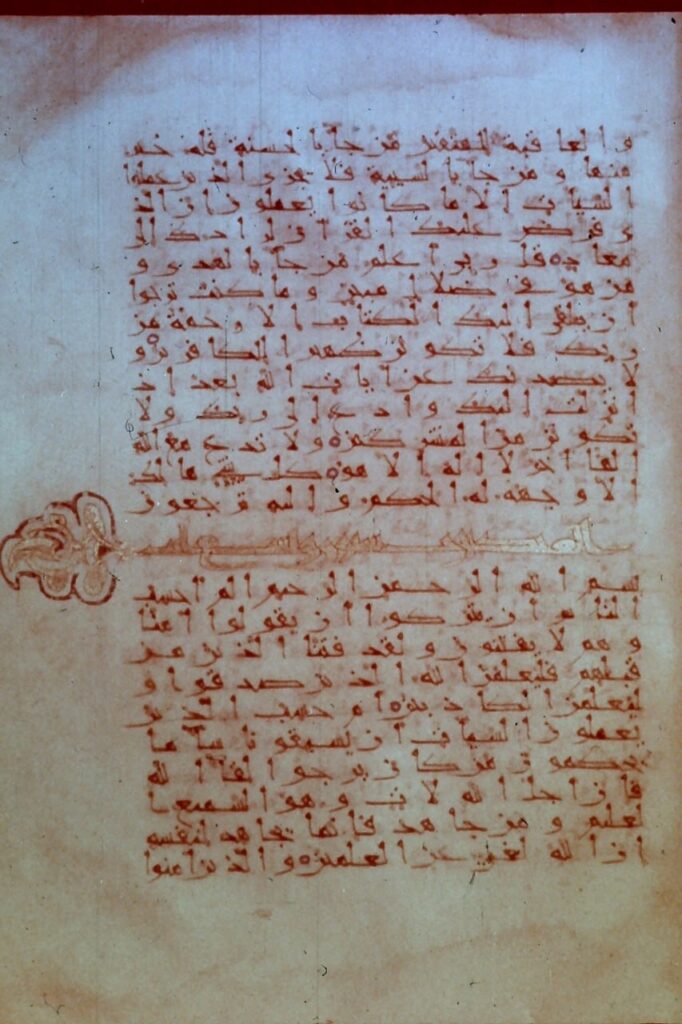 و العا قبة للمتقين من جآ با لحسنة فله خير
منها و من جآ با لسيية فلا يجزى ا لذ ين عملوا
ا لسيا ت ا لا ما كا نوا يعملو ن ا ن ا لذ
ى فر ض عليك ا لقرا ن لرا د ك ا لى
معا د قل ر بى ا علم من جآ با لهد ى و
من هو في ضلا ل مبين و ما كنت ترجوا
ا ن يلقى ا ليك ا لكتا ب ا لا ر حمة من
ر بك فلا تكو نن ظهيرا للكا فر ين و
لا يصد نك عن ا يا ت ا لله بعد ا ذ
ا نز لت ا ليك و ا د ع ا لى ر بك و لا
تكو نن من ا لمشر كين و لا تد ع مع ا لله
ا لها ا خر لا ا له ا لا هو كل شى ها لك
ا لا و جهه له ا لحكم و ا ليه تر جعو ن
بسم ا لله ا لر حمن ا لر حيم ا لم ا حسب
ا لنا س ا ن يتر كو ا ا ن يقو لوا ا منا
و هم لا يفتنو ن و لقد فتنا ا لذ ين من
قبلهم فليعلمن ا لله ا لذ ين صد قوا و
ليعلمن ا لكا ذ بين ا م حسب ا لذ ين
يعملو ن ا لسيا ت ا ن يسبقو نا سآ ما
يحكمو ن من كا ن ير جوا لقآ ا لله
فا ن ا جل ا لله لا ت و هو ا لسميع ا
لعليم و من جا هد فا نما يجا هد لنفسه
ا ن ا لله لغنى عن ا لعلمين و ا لذ ين ا منوا